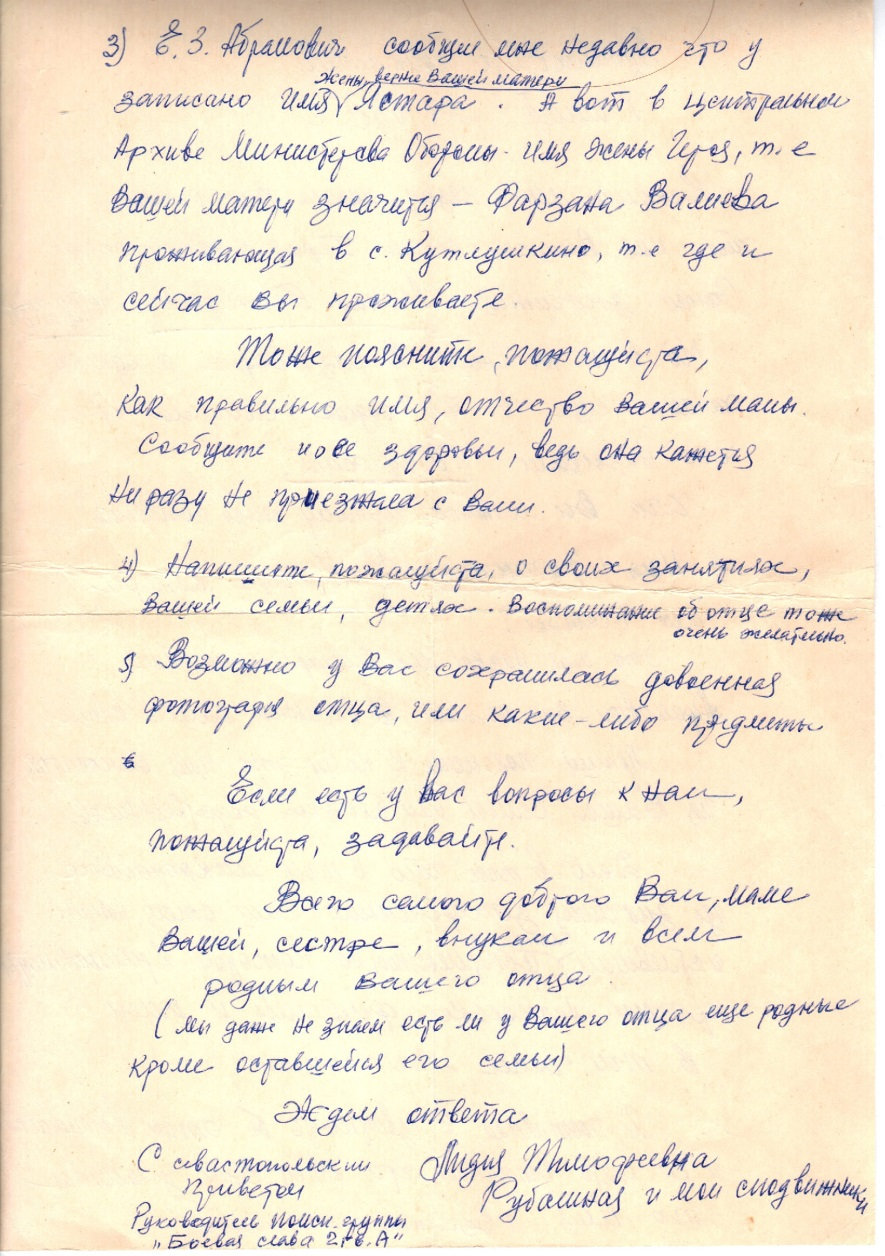 3) Е.З. Абрамович сообщил мне недавно что у
жены, верне Вашей матери
записано имя Ястара. А вот в центральном
Архиве Министерства Обороны - имя жены Героя, т.е
Вашей матери значится – Фарзана Валиева
проживающая в с. Кутлушкино, т.е где и
сейчас вы проживаете.
Тоже поясните, пожалуйста,
как правильно имя, отчество Вашей мамы.
Сообщите и о ее здоровьи, ведь она кажется
ни разу не приезжала с Вами.
4) Напишите, пожалуйста, о своих занятиях,
Вашей семьи, детях. Воспоминание об отце тоже
очень желательно.
5) Возможно у Вас сохранилась довоенная
фотография отца, или какие-либо предметы
6
Если есть у Вас вопросы к нам,
пожалуйста, задавайте.
Всего самого доброго Вам, маме
Вашей, сестре, внукам и всем
родным Вашего отца.
(мы даже не знаем есть ли у Вашего отца еще родные
кроме оставшейся его семьи)
Ждем ответа
С севастопольским
приветом
Лидия Тимофеевна
и мои сподвижники
Руководитель поиск. группы
"Боевая слава 2 гв. А"